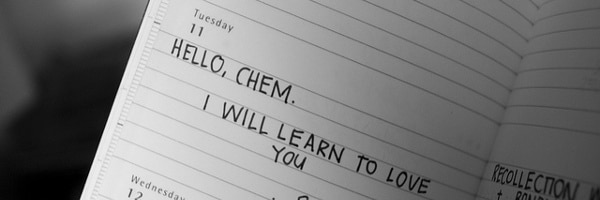 Tuesday
11
HELLO, CHEM.
I WILL LEARN TO LOVE
YOU
Wednesday
12
RECOLLECTION